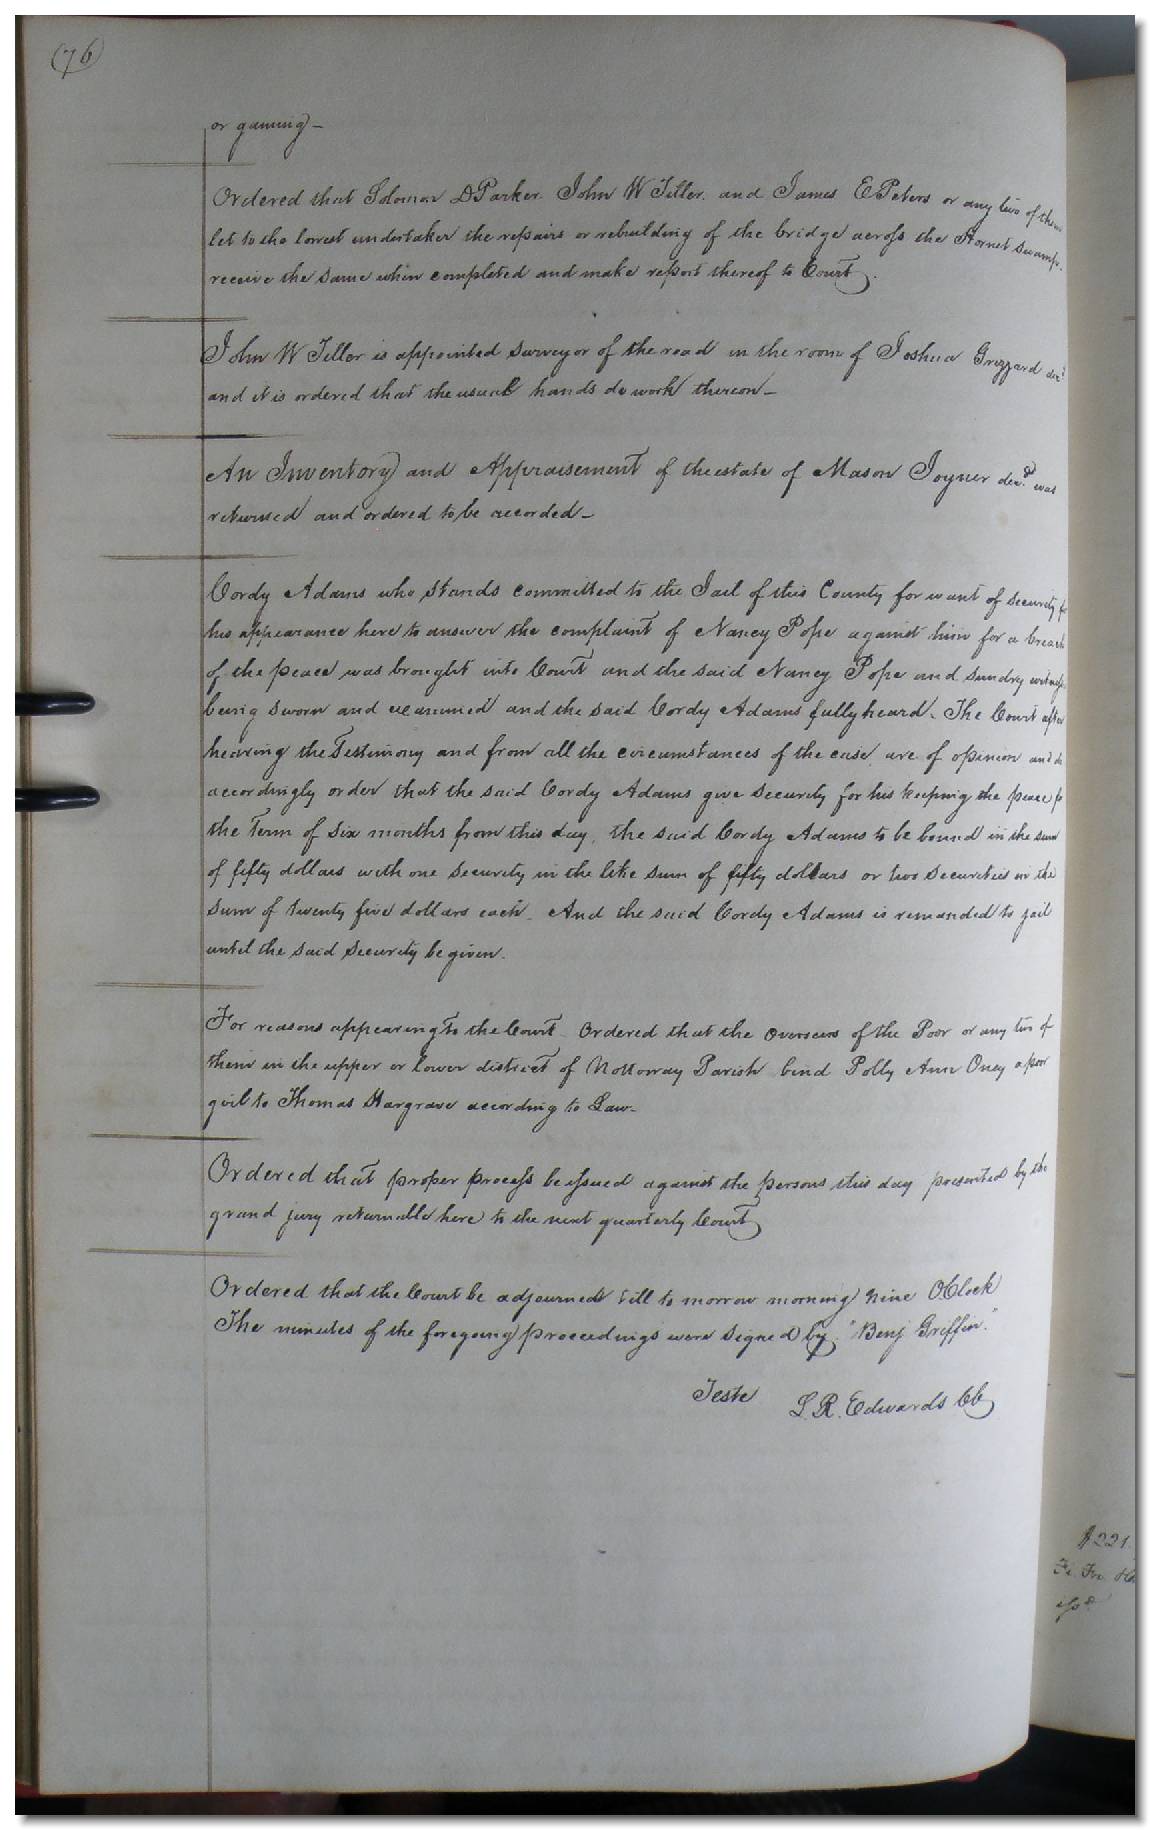 (76)
or gaming —
Ordered that Solomon D Parker. John W Tiller. and James E Peters or any two of them
let to the lowest undertaker the repairs or rebuilding of the bridge across the Hornet Swamp.
receive the same when completed and make report thereof to Court.
John W Tiller is appointed surveyor of the road in the room of Joshua Grizzard decd
and it is ordered that the usual hands do work thereon —
An Inventory and Appraisement of the estate of Mason Joyner decd. was
returned and ordered to be recorded —
Cordy Adams who stands committed to the Jail of this County for want of security fo
his appearance here to answer the complaint of Nancy Pope against him for a breach
of the peace was brought into Court and the said Nancy Pope and sundry witness
being sworn and examined and the said Cordy Adams fully heard. The Court after
hearing the Testimony and from all the circumstances of the case, are of opinion and do
accordingly order that the said Cordy Adams give security for his keeping the peace fo
the Term of six months from this day, the said Cordy Adams to be bound in the sum
of fifty dollars with one security in the like sum of fifty dollars or two securities in the
sum of twenty five dollars each. And the said Cordy Adams is remanded to jail
until the said security be given.
For reasons appearing to the Court Ordered that the Overseers of the Poor or any two of
them in the upper or lower district of Nottoway Parish bind Polly Ann Oney a poor
girl to Thomas Hargrave according to Law —
Ordered that proper process be issued against the persons this day presented by the
grand jury returnable here to the next quarterly Court
Ordered that the Court be adjourned till to morrow morning nine OClock
The minutes of the foregoing proceedings were signed by. "Benj Griffin."
Teste L. R. Edwards CC
$221.
Fi. Fa.
issd